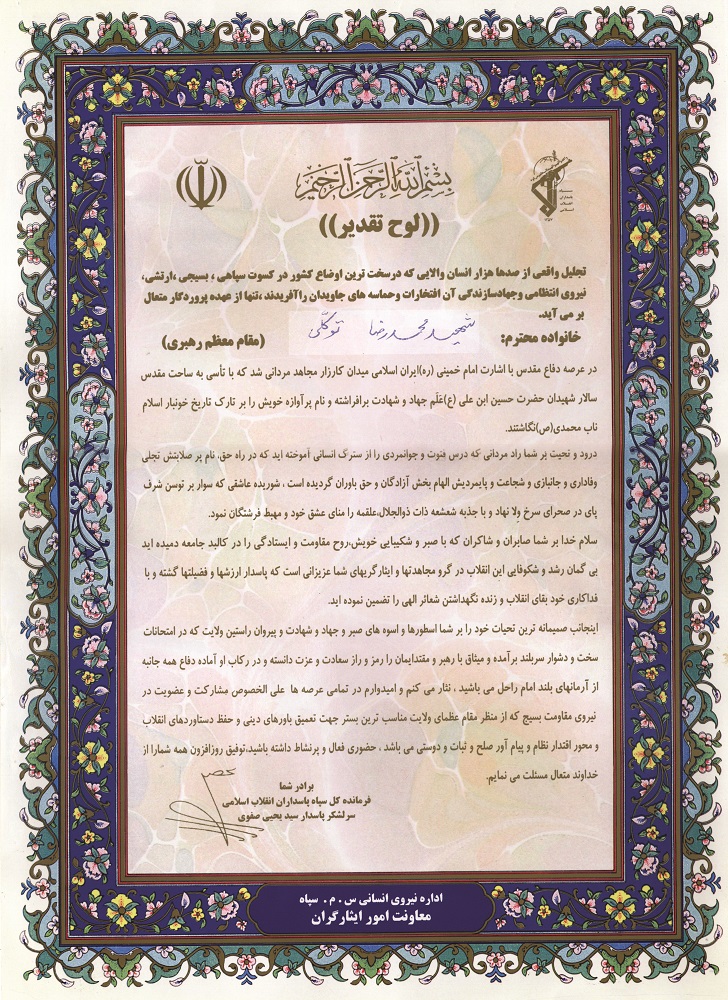 بسم الله الرحمن الرحیم
سپاه
پاسداران
انقلاب
اسلامی
((لوح تقدیر))
تجلیل واقعی از صدها هزار انسان والایی که درسخت ترین اوضاع کشور در کسوت سپاهی ، بسیجی ،ارتشی،
نیروی انتظامی وجهادسازندگی آن افتخارات وحماسه های جاویدان راآفریدند ،تنها از عهده پروردگار متعال
بر می آید. (مقام معظم رهبری)
خانواده محترم: شهید محمدرضا توکلّی
در عرصه دفاع مقدس با اشارت امام خمینی (ره)ایران اسلامی میدان کارزار مجاهد مردانی شد که با تأسی به ساحت مقدس
سالار شهیدان حضرت حسین ابن علی (ع)عَلَم جهاد و شهادت برافراشته و نام پرآوازه خویش را بر تارک تاریخ خونبار اسلام
ناب محمدی(ص)نگاشتند.
درود و تحیت بر شما راد مردانی که درس فتوت و جوانمردی را از سترگ انسانی آموخته اید که در راه حق، نام پر صلابتش تجلی
وفاداری و جانبازی و شجاعت و پایمردیش الهام بخش آزادگان و حق باوران گردیده است ، شوریده عاشقی که سوار بر توسن شرف
پای در صحرای سرخ ولا نهاد و با جذبه شعشعه ذات ذوالجلال،علقمه را منای عشق خود و مهبط فرشتگان نمود.
سلام خدا بر شما صابران و شاکران که با صبر و شکیبایی خویش،روح مقاومت و ایستادگی را در کالبد جامعه دمیده اید
بی گمان رشد و شکوفایی این انقلاب در گرو مجاهدتها و ایثارگریهای شما عزیزانی است که پاسدار ارزشها و فضیلتها گشته و با
فداکاری خود بقای انقلاب و زنده نگهداشتن شعائر الهی را تضمین نموده اید.
اینجانب صمیمانه ترین تحیات خود را بر شما اسطورها و اسوه های صبر و جهاد و شهادت و پیروان راستین ولایت که در امتحانات
سخت و دشوار سربلند برآمده و میثاق با رهبر و مقتدایمان را رمز و راز سعادت و عزت دانسته و در رکاب او آماده دفاع همه جانبه
از آرمانهای بلند امام راحل می باشید ، نثار می کنم و امیدوارم در تمامی عرصه ها علی الخصوص مشارکت و عضویت در
نیروی مقاومت بسیج که از منظر مقام عظمای ولایت مناسب ترین بستر جهت تعمیق باورهای دینی و حفظ دستاوردهای انقلاب
و محور اقتدار نظام و پیام آور صلح و ثبات و دوستی می باشد ، حضوری فعال و پرنشاط داشته باشید،توفیق روزافزون همه شمارا از
خداوند متعال مسئلت می نمایم.
برادر شما
فرمانده کل سپاه پاسداران انقلاب اسلامی
سرلشکر پاسدار سید یحیی صفوی
اداره نیروی انسانی س . م . سپاه
معاونت امور ایثارگران